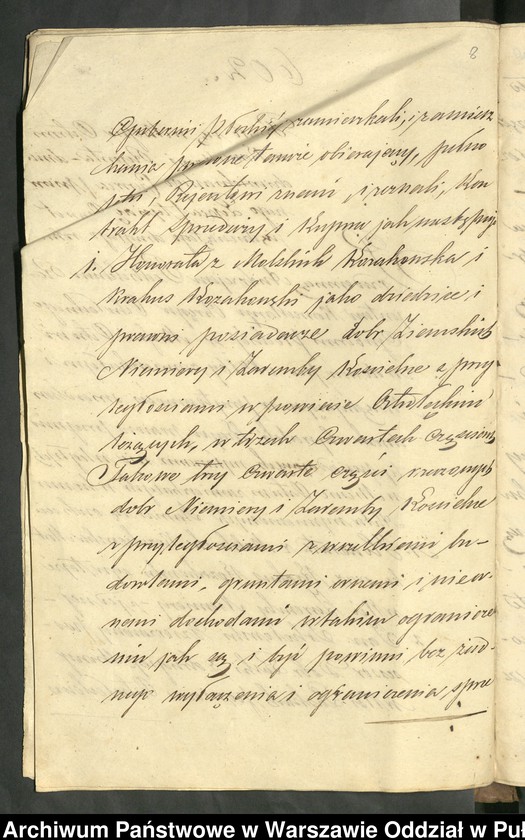 8
Guberni Płockiej zamieszkali, i zamiesz
kania prawne tamże obierający, pełno
letni, Rejentowi znani, i zeznali, Kon
trakt Sprzedaży i Kupna jak następuje
1. Honorata z Kozakowska i
Krakus Kozakowski jako dziedzice i
prawni posiadacze dobr Ziemskich
Niemiery i Zaremby Kościelne z przy
ległościami w powiecie Ostrołęckim
leżących, w trzech Czwartych częściach
Takowe trzy Czwarte części rzeczonych
dobr Niemiery i Zaremby Kościelne
z przyległościami z wszelkiemi bu-
dowlami, gruntami ornemi i nieor-
nemi dochodami w takim ogranicze
niu jak są i być powinni bez żad-
nego wyłączenia i ograniczenia sprze
Archiwum Państwowe w Warszawie Oddział w Puł